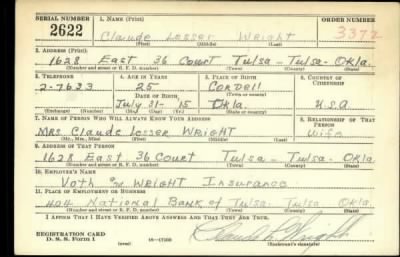 SERIAL NUMBER 1. NAME (Print) ORDER NUMBER
2622 Claude Losser Wright 3372
(First) (Middle) (Last)
2. ADDRESS (Print)
1628 East 36 Court Tulsa - Tulsa - Okla.
(Number and street or R. F. D. number) (Town) (County) (State)
3. TELEPHONE 4. AGE IN YEARS 5. PLACE OF BIRTH 6. COUNTRY OF CITIZENSHIP
2-7633 25 Cordell
DATE OF BIRTH (Town or county)
July 31 - 15 Okla. U.S.A
(Exchange) (Number) (Mo.) (Day) (Yr.) (State or country)
7. NAME OF PERSON WHO WILL ALWAYS KNOW YOUR ADDRESS 8. RELATIONSHIP OF THAT PERSON
Mrs Claude Losser Wright Wife
(Mr., Mrs., Miss) (First) (Middle) (Last)
9. ADDRESS OF THAT PERSON
1628 East 36 Court Tulsa - Tulsa - Okla.
(Number and street or R. F. D. number) (Town) (County) (State)
10. EMPLOYER'S NAME
Voth & Wright Insurance
11. PLACE OF EMPLOYMENT OR BUSINESS
404 National Bank of Tulsa Tulsa Okla.
(Number and street or R. F. D. number) (Town) (County) (State)
I AFFIRM THAT I HAVE VERIFIED ABOVE ANSWERS AND THAT THEY ARE TRUE.
REGISTRATION CARD
D. S. S. Form 1 (over) Claude L. Wright
(Registrant's signature)